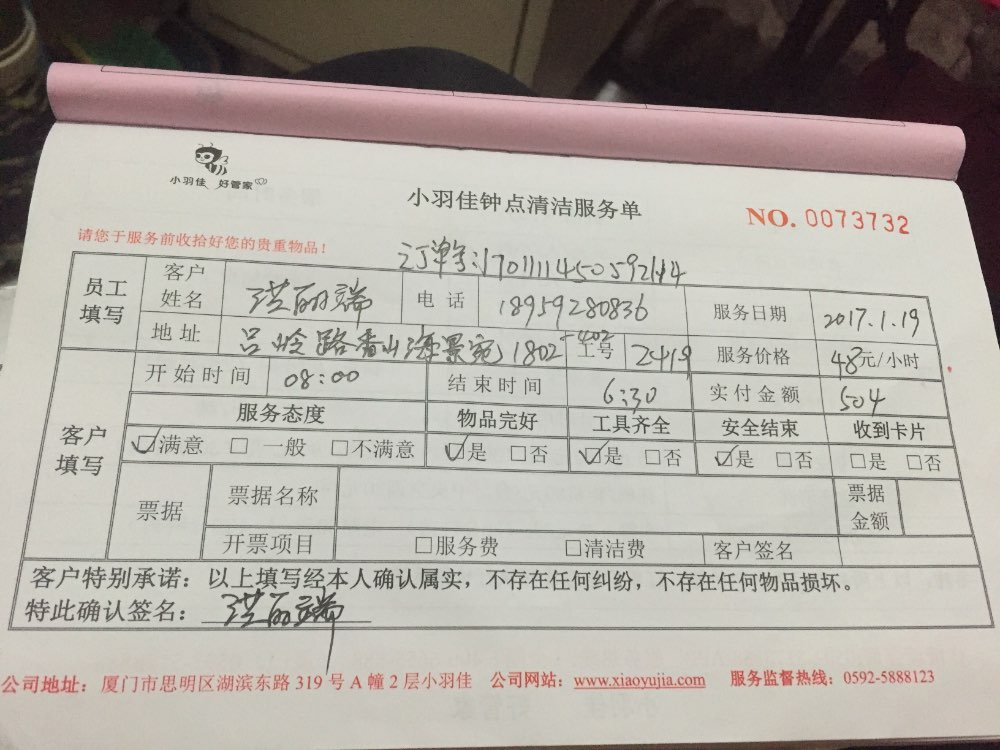 小羽佳 好管家
小羽佳钟点清洁服务单
NO. 0073732
请您于服务前收拾好您的贵重物品！
订单号:1701111450592144
员工填写 客户姓名 洪丽端 电话 18959280836 服务日期 2017.1.19
地址 吕岭路香山海景苑1802-402 工号 2419 服务价格 48元/小时
开始时间 08:00 结束时间 6:30 实付金额 504
客户填写 服务态度 物品完好 工具齐全 安全结束 收到卡片
☑满意 □一般 □不满意 ☑是 □否 ☑是 □否 ☑是 □否 □是 □否
票据 票据名称 票据金额
开票项目 □服务费 □清洁费 客户签名
客户特别承诺：以上填写经本人确认属实，不存在任何纠纷，不存在任何物品损坏。
特此确认签名：洪丽端
公司地址：厦门市思明区湖滨东路319号A幢2层小羽佳 公司网站：www.xiaoyujia.com 服务监督热线：0592-5888123